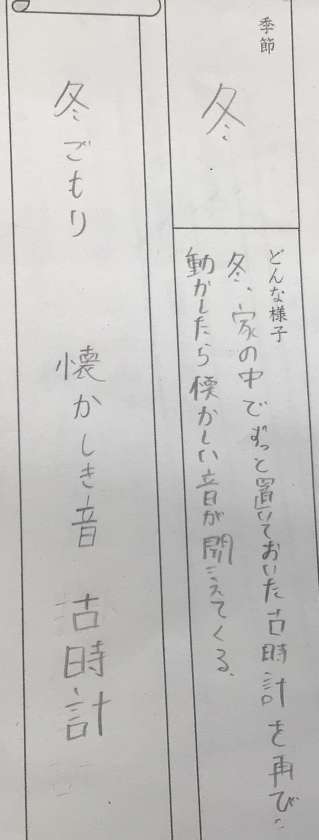 季節
冬
どんな様子
冬、家の中でずっと置いておいた古時計を再び
動かしたら懐かしい音が聞こえてくる。
冬ごもり 懐かしき音 古時計